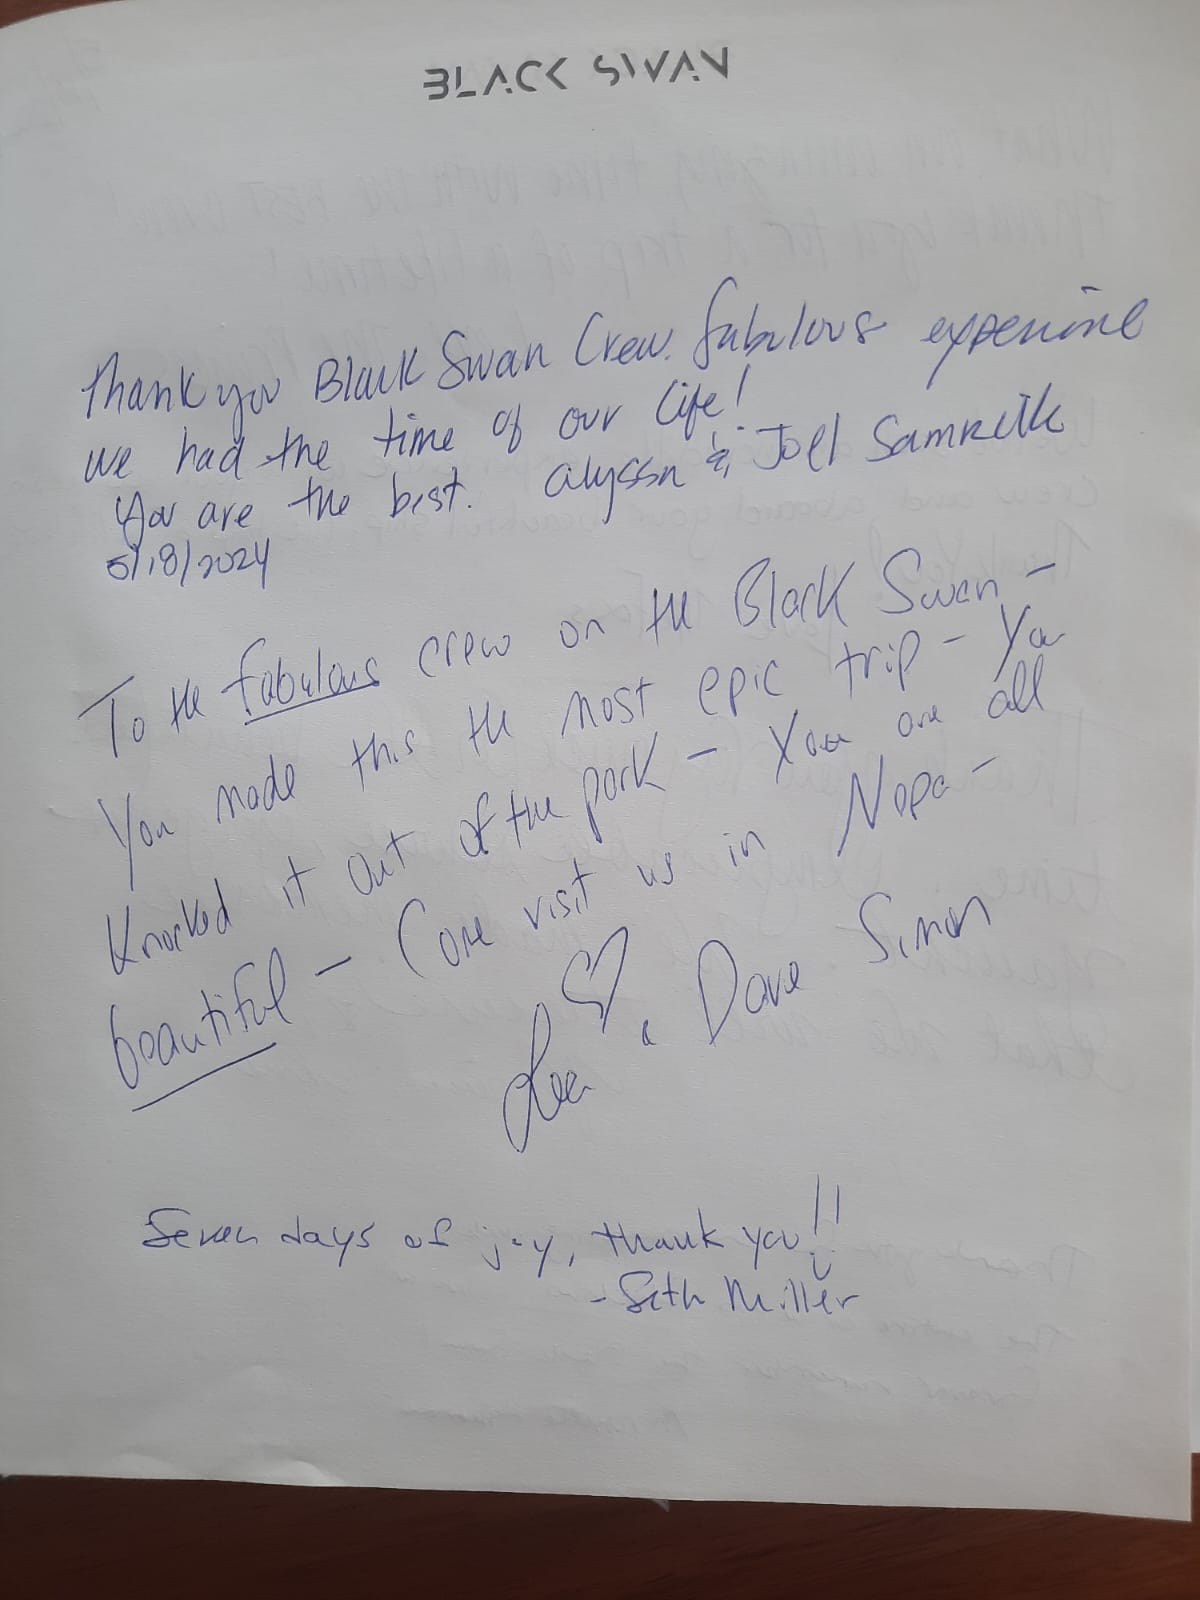 BLACK SWAN
Thank you Black Swan Crew. Fabulous experience
we had the time of our life!
You are the best. Alyssa & Joel
5/18/2024
To the fabulous crew on the Black Swan -
You made this the most epic trip - You
knocked it out of the park - You are all
beautiful - Come visit us in Napa -
♡ & Dave Simon
Seven days of joy, thank you!!
- Seth Miller